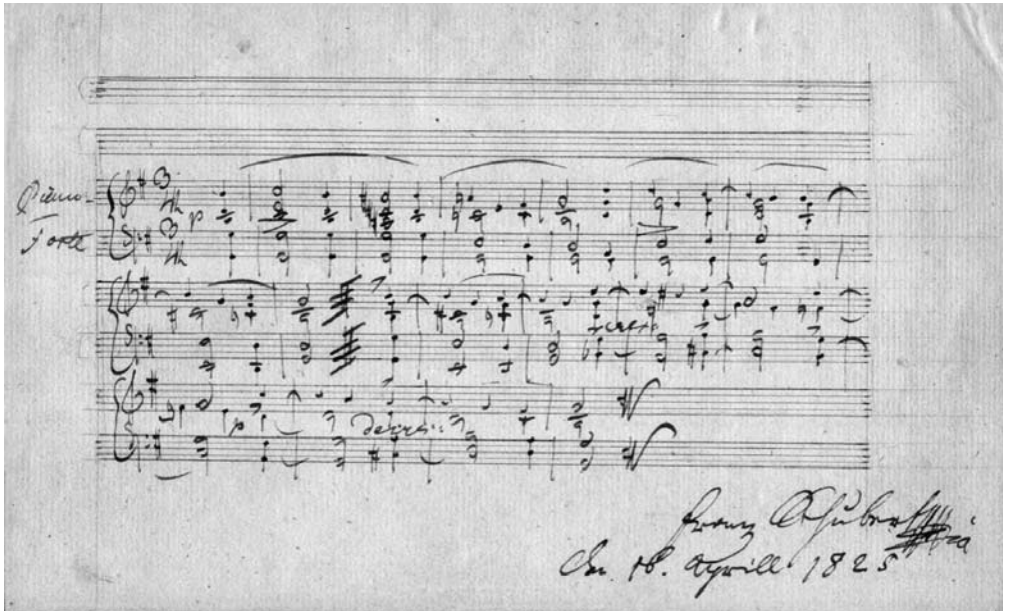 Piano-
Forte
3
4
p
3
4
cresc.
p
decresc.
Franz Schubert
Den 16. Aprill 1825